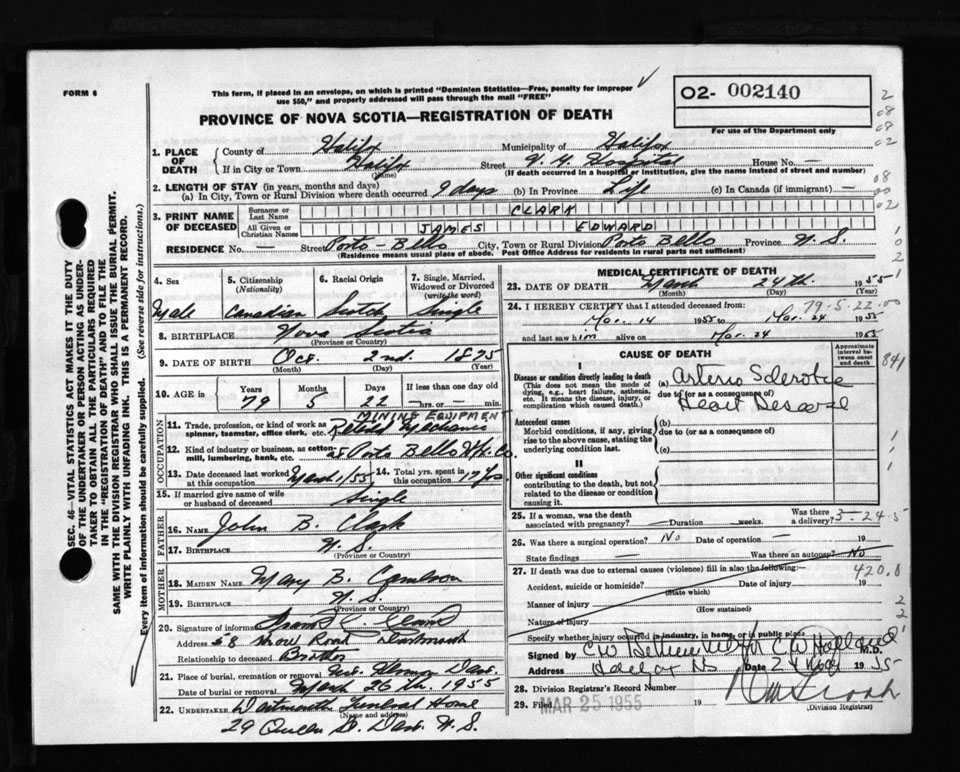 FORM 6
This form, if placed in an envelope, on which is printed "Dominion Statistics—Free, penalty for improper
use $50," and properly addressed will pass through the mail "FREE"
O2- 002140
For use of the Department only
PROVINCE OF NOVA SCOTIA—REGISTRATION OF DEATH
1. PLACE OF DEATH { County of Halifx Municipality of Halifax
If in City or Town Halifax (Name) Street V. G. Hospital House No. —
(If death occurred in a hospital or institution, give the name instead of street and number)
2. LENGTH OF STAY (in years, months and days)
(a) In City, Town or Rural Division where death occurred 9 days (b) In Province Life (c) In Canada (if immigrant) —
3. PRINT NAME OF DECEASED { Surname or Last Name CLARK
All Given or Christian Names JAMES EDWARD
RESIDENCE No. — Street Porto-Bello City, Town or Rural Division Porto Bello Province N.S.
(Residence means usual place of abode. Post Office Address for residents in rural parts not sufficient)
4. Sex
5. Citizenship (Nationality)
6. Racial Origin
7. Single, Married, Widowed or Divorced (write the word)
Male Canadian Scotch Single
8. BIRTHPLACE Nova Scotia
(Province or Country)
9. DATE OF BIRTH Oct. 2nd. 1875
(Month) (Day) (Year)
10. AGE in Years Months Days If less than one day old
79 5 22 —hrs. or — min.
MINING EQUIPMENT
OCCUPATION
11. Trade, profession, or kind of work as spinner, teamster, office clerk, etc. Retired Mechanic
12. Kind of industry or business, as cotton-mill, lumbering, bank, etc. Porto Bello Co.
13. Date deceased last worked at this occupation March/55 14. Total yrs. spent in this occupation
15. If married give name of wife or husband of deceased Single
FATHER
16. NAME John B. Clark
17. BIRTHPLACE N.S.
(Province or Country)
MOTHER
18. MAIDEN NAME Mary B. Cameron
19. BIRTHPLACE N.S.
(Province or Country)
20. Signature of informant
Address 58 Road Dartmouth
Relationship to deceased Brother
21. Place of burial, cremation or removal Dart.
Date of burial or removal March 26th. 1955
22. UNDERTAKER Dartmouth Funeral Home
(Name and address)
29 Queen St. Dart. N.S.
MEDICAL CERTIFICATE OF DEATH
23. DATE OF DEATH March 24th. 1955
(Month) (Day)
24. I HEREBY CERTIFY that I attended deceased from: 79-5-22-00
Mar. 14 1955 to Mar. 24 1955
and last saw him alive on Mar. 24 1955
CAUSE OF DEATH
Approximate interval between onset and death
I
Disease or condition directly leading to death
(This does not mean the mode of dying, e.g., heart failure, asthenia, etc. It means the disease, injury, or complication which caused death.)
(a) Arterio Sclerotic
due to (or as a consequence of)
Heart Disease
Antecedent causes
Morbid conditions, if any, giving rise to the above cause, stating the underlying condition last.
(b)
due to (or as a consequence of)
(c)
II
Other significant conditions
contributing to the death, but not related to the disease or condition causing it.
25. If a woman, was the death associated with pregnancy? — Duration — weeks. Was there a delivery? 3-24-5
26. Was there a surgical operation? No Date of operation — 19
State findings — Was there an autopsy? No
27. If death was due to external causes (violence) fill in also the following:— 420.0
Accident, suicide or homicide? Date of injury 19
(State which)
Manner of injury
(How sustained)
Nature of injury
Specify whether injury occurred in industry, in home, or in public place
Signed by for C W Holland M.D.
Address Halifax NS Date 24 1955
28. Division Registrar's Record Number
29. Filed MAR 25 1955 19
(Division Registrar)
SEC. 46—VITAL STATISTICS ACT MAKES IT THE DUTY
OF THE UNDERTAKER OR PERSON ACTING AS UNDER-
TAKER TO OBTAIN ALL THE PARTICULARS REQUIRED
IN THE "REGISTRATION OF DEATH" AND TO FILE THE
SAME WITH THE DIVISION REGISTRAR WHO SHALL ISSUE THE BURIAL PERMIT.
WRITE PLAINLY WITH UNFADING INK. THIS IS A PERMANENT RECORD.
Every item of information should be carefully supplied. (See reverse side for instructions.)
2
08
08
02
08
00
02
1
0
2
2
1
841
1
1
1
2
2
1